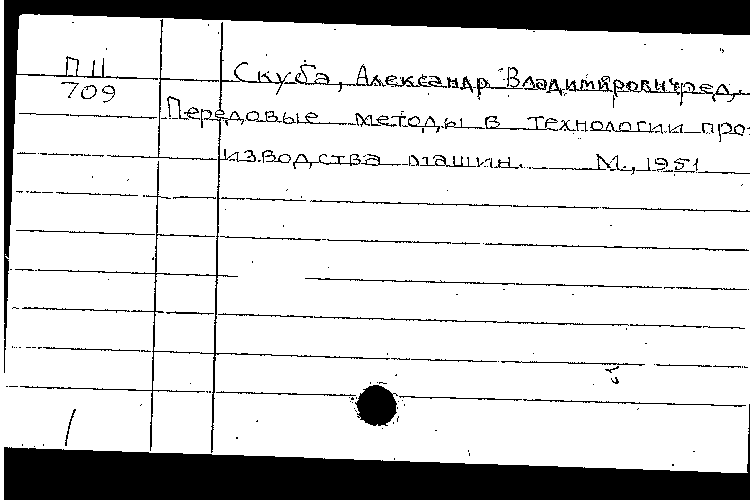 П 11
709
Скуба, Александр Владимирович, ред.
Передовые методы в технологии про-
изводства машин. М., 1951